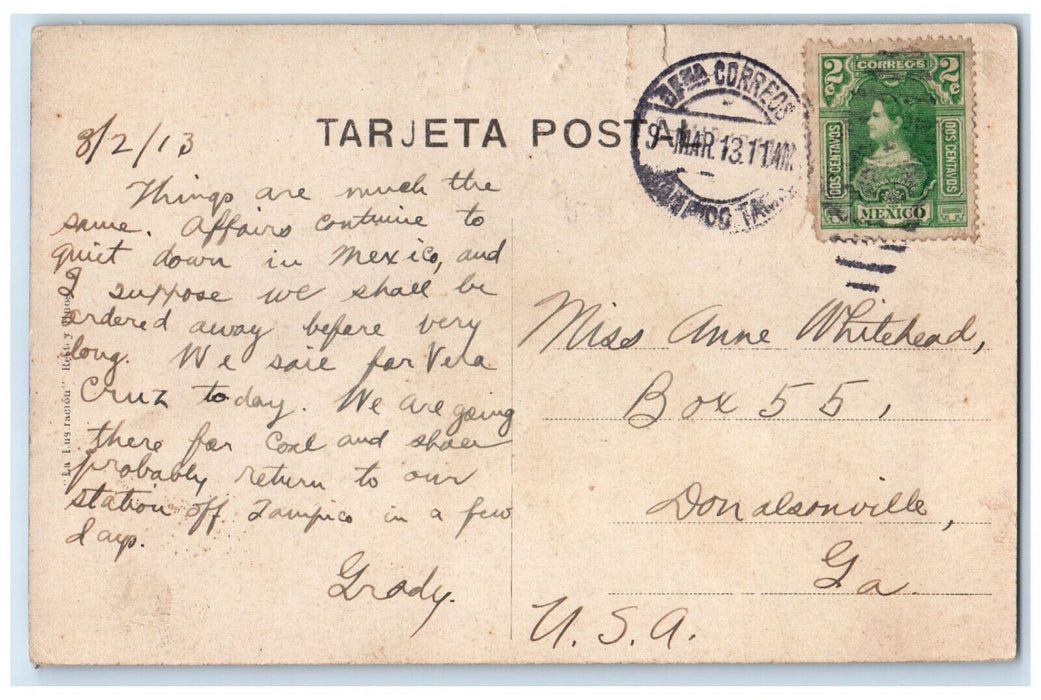 TARJETA POSTAL
8/2/13
Things are much the
same. Affairs continue to
quiet down in Mexico, and
I suppose we shall be
ordered away before very
long. We sail for Vera
Cruz today. We are going
there for coal and shall
probably return to our
station off Tampico in a few
days.
Grady.
CORREOS
9 MAR. 13. 11 AM
TAMPICO
2 CORREOS 2
DOS CENTAVOS
DOS CENTAVOS
MEXICO
Miss Anne Whitehead,
Box 55,
Donalsonville,
Ga.
U.S.A.
"La Ilustración"